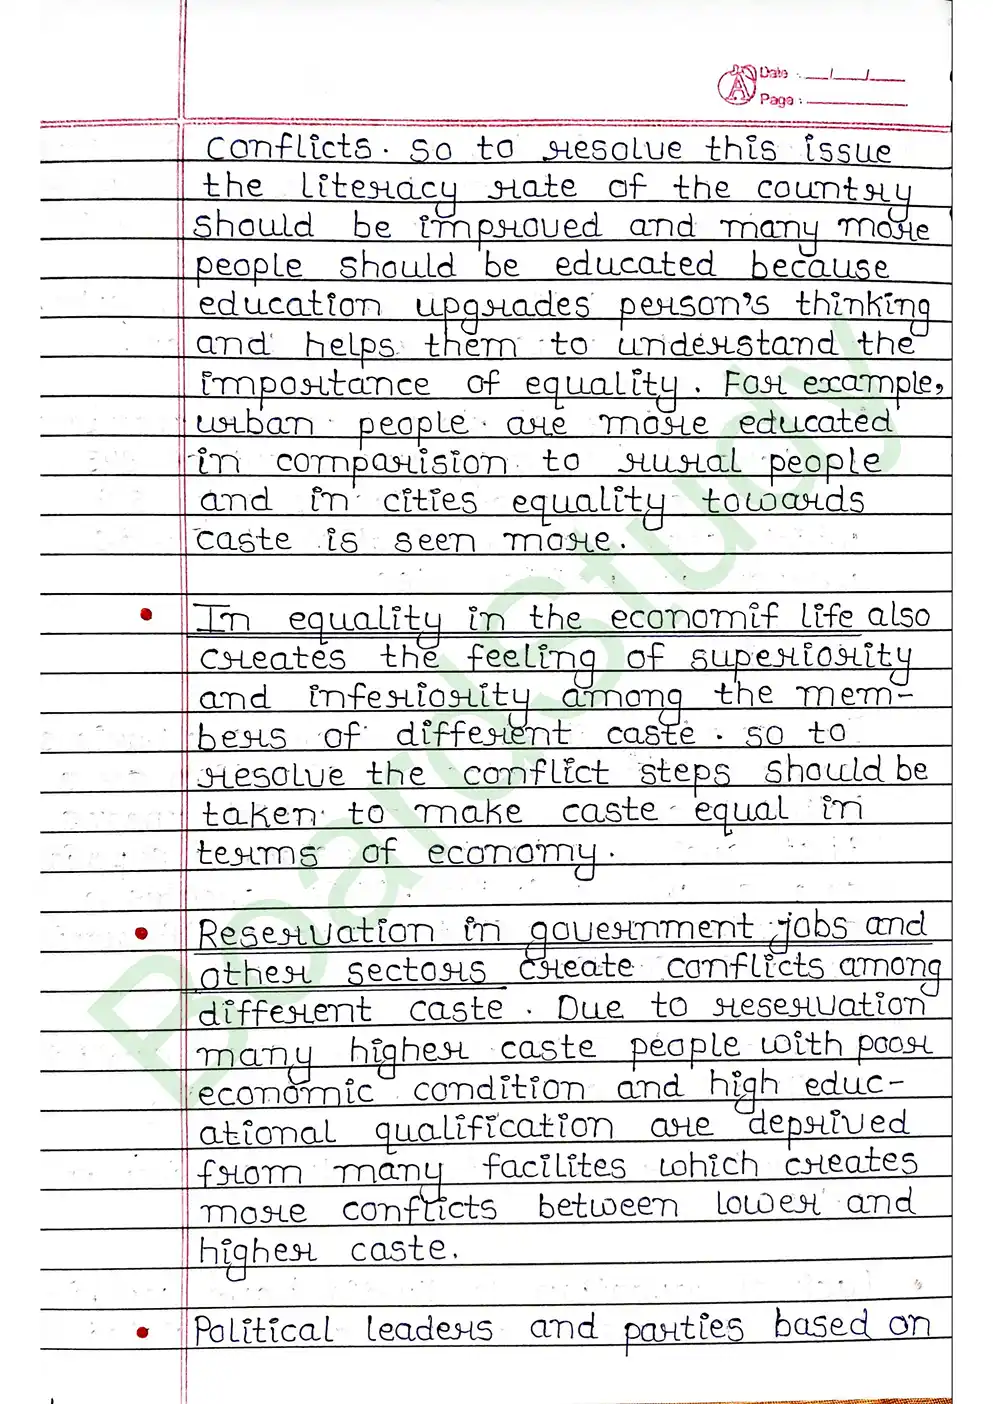 Date : __/__/__
Page : ________
conflicts. so to resolve this issue
the literacy rate of the country
should be improved and many more
people should be educated because
education upgrades person's thinking
and helps them to understand the
importance of equality. For example,
urban people are more educated
in comparision to rural people
and in cities equality towards
caste is seen more.
• In equality in the economif life also
creates the feeling of superiority
and inferiority among the mem-
bers of different caste. so to
resolve the conflict steps should be
taken to make caste equal in
terms of economy.
• Reservation in government jobs and
other sectors create conflicts among
different caste. Due to reservation
many higher caste people with poor
economic condition and high educ-
ational qualification are deprived
from many facilites which creates
more conflicts between lower and
higher caste.
• Political leaders and parties based on
BoardStudy